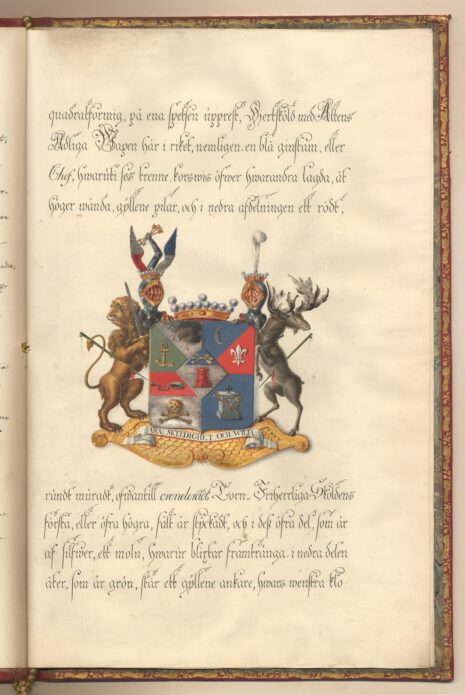 quadratformig, på ena spetsen upprest, Hertsköld med Ättens
Adliga Wapen här i riket, nemligen en blå ginstam, eller
Chef, hwaruti ses trenne, korswis öfwer hwarandra lagda, åt
höger wända, gyllene pilar, och i nedra afdelningen ett rödt,
ÄRA, SKYLDIGHET OCH WILJA
rundt muradt, ofwantill crenelerat Torn. Friherrliga Sköldens
första, eller öfra högra, fält är styckadt, och i dess öfra del, som är
af silfwer, ett moln, hwarur blixtar framtränga: i nedra delen
åter, som är grön, står ett gyllene ankare, hwars wenstra klo